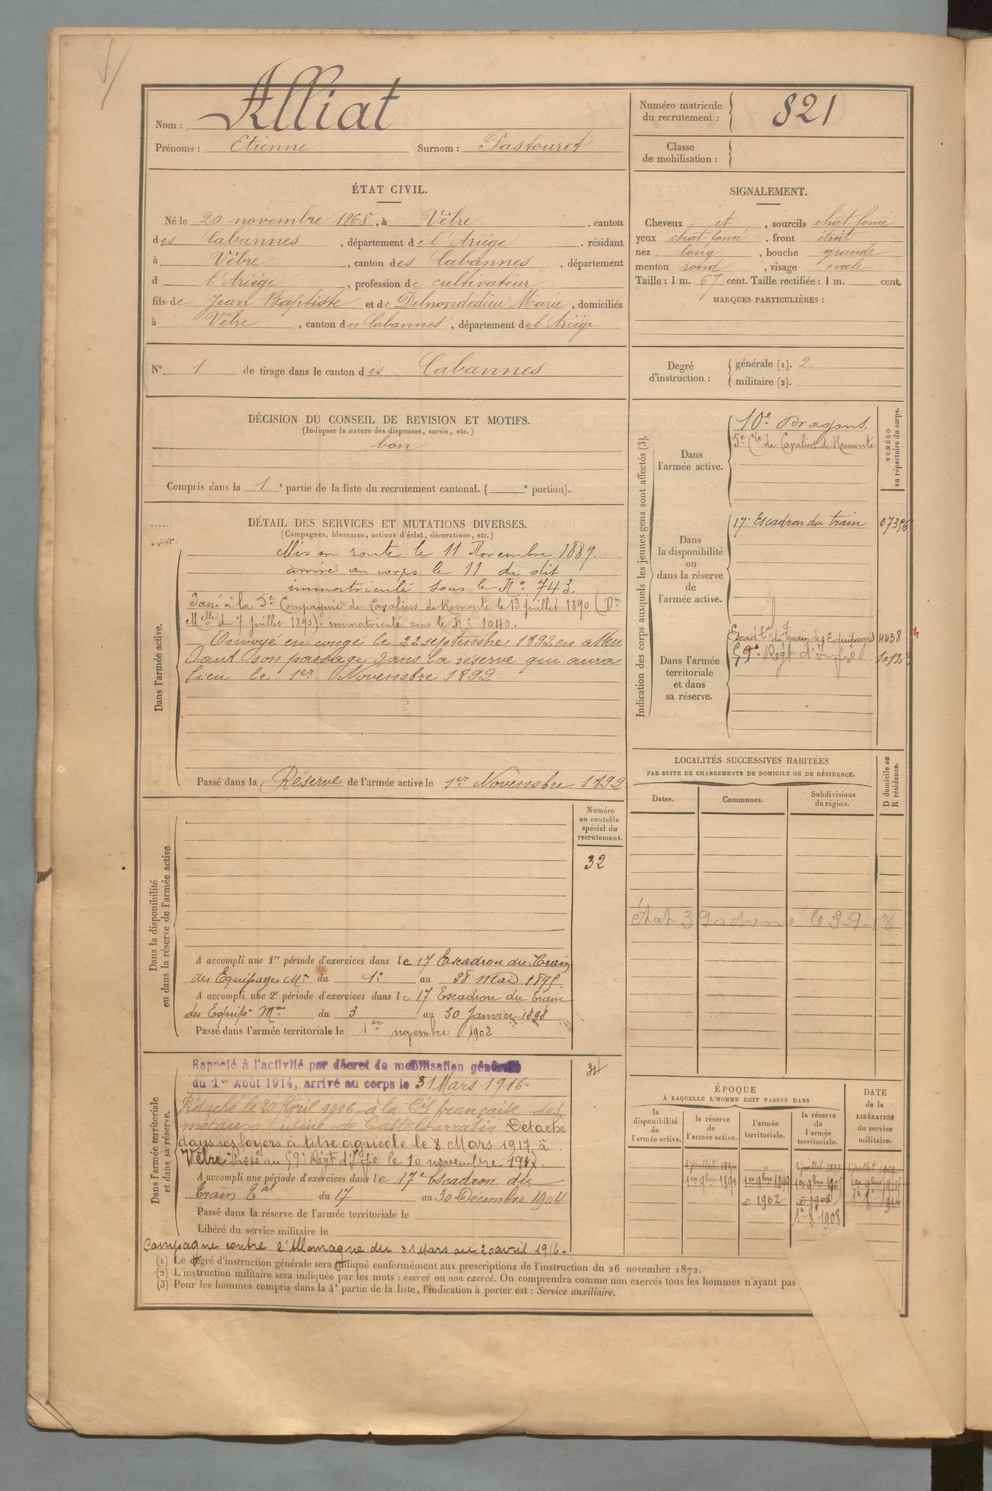 Nom : Alliat
Prénoms : Etienne Surnom : Pastouret
Numéro matricule du recrutement : 821
Classe de mobilisation :
ÉTAT CIVIL.
Né le 20 novembre 1868, à Vèbre, canton
des Cabannes, département de l'Ariège, résidant
à Vèbre, canton des Cabannes, département
d l'Ariège, profession de cultivateur
fils de Jean Baptiste et de Delnondedieu Marie, domiciliés
à Vèbre, canton des Cabannes, département de l'Ariège
SIGNALEMENT.
Cheveux et, sourcils chat-foncé
yeux chat-foncé, front étroit
nez long, bouche grande
menton rond, visage ovale
Taille : 1 m. 67 cent. Taille rectifiée : 1 m. cent.
MARQUES PARTICULIÈRES :
N° 1 de tirage dans le canton des Cabannes
Degré d'instruction : générale (1). 2
militaire (2).
DÉCISION DU CONSEIL DE REVISION ET MOTIFS.
(Indiquer la nature des dispenses, sursis, etc.)
bon
Compris dans la 1e partie de la liste du recrutement cantonal. ( e portion).
DÉTAIL DES SERVICES ET MUTATIONS DIVERSES.
(Campagnes, blessures, actions d'éclat, décorations, etc.)
Dans l'armée active.
Mis en route le 11 Novembre 1889.
arrivé au corps le 11 du dit
immatriculé sous le N° 743.
Passé à la 5e Compagnie de Cavaliers de Remonte le 13 juillet 1890 (Don
Mlle du 7 juillet 1890) - immatriculé sous le N° 1040.
Envoyé en congé le 22 septembre 1892 en atten
dant son passage dans la réserve qui aura
lieu le 1er Novembre 1892
Passé dans la Réserve de l'armée active le 1er Novembre 1892
Indication des corps auxquels les jeunes gens sont affectés (3).
NUMÉRO au répertoire du corps.
Dans l'armée active.
10e Dragons.
5e Cie de Cavaliers de Remonte
Dans la disponibilité ou dans la réserve de l'armée active.
17e Escadron du train
Dans l'armée territoriale et dans sa réserve.
Escad. du train des Equipages 4438
59e Régt d'Infie
LOCALITÉS SUCCESSIVES HABITÉES
PAR SUITE DE CHANGEMENTS DE DOMICILE OU DE RÉSIDENCE.
Dates. Communes. Subdivisions de région. D domicile ou R résidence.
Dans la disponibilité ou dans la réserve de l'armée active.
Numéro au contrôle spécial du recrutement.
32
A accompli une 1re période d'exercices dans le 17 Escadron du Train
des Equipages Mres du 1er au 28 mai 1895.
A accompli une 2e période d'exercices dans le 17 Escadron du train
des Equips Mres du 3 au 30 Janvier 1898
Passé dans l'armée territoriale le 1er novembre 1902
Dans l'armée territoriale et dans sa réserve.
Rappelé à l'activité par décret de mobilisation générale
du 1er Août 1914, arrivé au corps le 31 Mars 1916
Détaché le 20 Avril 1916 à la Cie française des
métaux (usine de Castelsarrasin. Détaché
dans ses foyers à titre agricole le 8 Mars 1917 à
Vèbre. Passé au 59e Régt d'Infie le 10 novembre 1917.
A accompli une période d'exercices dans le 17e Escadron du
train Eal du 17 au 30 Décembre 1904
Passé dans la réserve de l'armée territoriale le
Libéré du service militaire le
Campagne contre l'Allemagne du 31 Mars au 20 avril 1916.
ÉPOQUE
À LAQUELLE L'HOMME DOIT PASSER DANS
la disponibilité de l'armée active. la réserve de l'armée active. l'armée territoriale. la réserve de l'armée territoriale.
DATE de la LIBÉRATION du service militaire.
(1) Le degré d'instruction générale sera indiqué conformément aux prescriptions de l'instruction du 26 novembre 1872.
(2) L'instruction militaire sera indiquée par les mots : exercé ou non exercé. On comprendra comme non exercés tous les hommes n'ayant pas
(3) Pour les hommes compris dans la 4e partie de la liste, l'indication à porter est : Service auxiliaire.